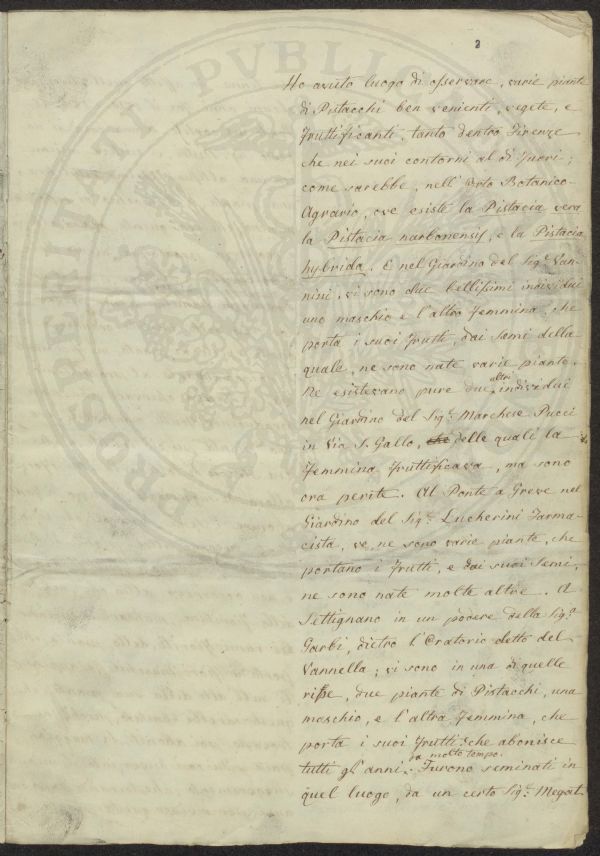 3
Ho avuto luogo di osservare, varie piante
di Pistacchi ben venienti, vegete, e
fruttificanti, tanto dentro Firenze
che nei suoi contorni al di fuori;
come sarebbe, nell' Orto Botanico-
Agrario, ove esiste la Pistacia vera
la Pistacia narbonensis, e la Pistacia
hybrida. E nel Giardino del Sigr. Van-
nini, vi sono due bellissimi individui
uno maschio e l'altro femmina, che
porta i suoi frutti, dai semi della
quale, ne sono nate varie piante.
Ne esistevano pure due altri individui
nel Giardino del Sigr. Marchese Pucci
in Via S. Gallo, che delle quali la
femmina fruttificava, ma sono
ora perite. Al Ponte a Greve nel
Giardino del Sigr. Lucherini Farma-
cista, ve ne sono varie piante, che
portano i frutti, e dai suoi semi,
ne sono nate molte altre. A
Settignano in un podere della Sigra.
Garbi, dietro l'Oratorio detto del
Vannella; vi sono in una di quelle
ripe, due piante di Pistacchi, una
maschio, e l'altra femmina, che
porta i suoi frutti che abonisce
tutti gl'anni. da molto tempo. Furono seminati in
quel luogo, da un certo Sigr. Megat
PROSPERITATI PVBLIC